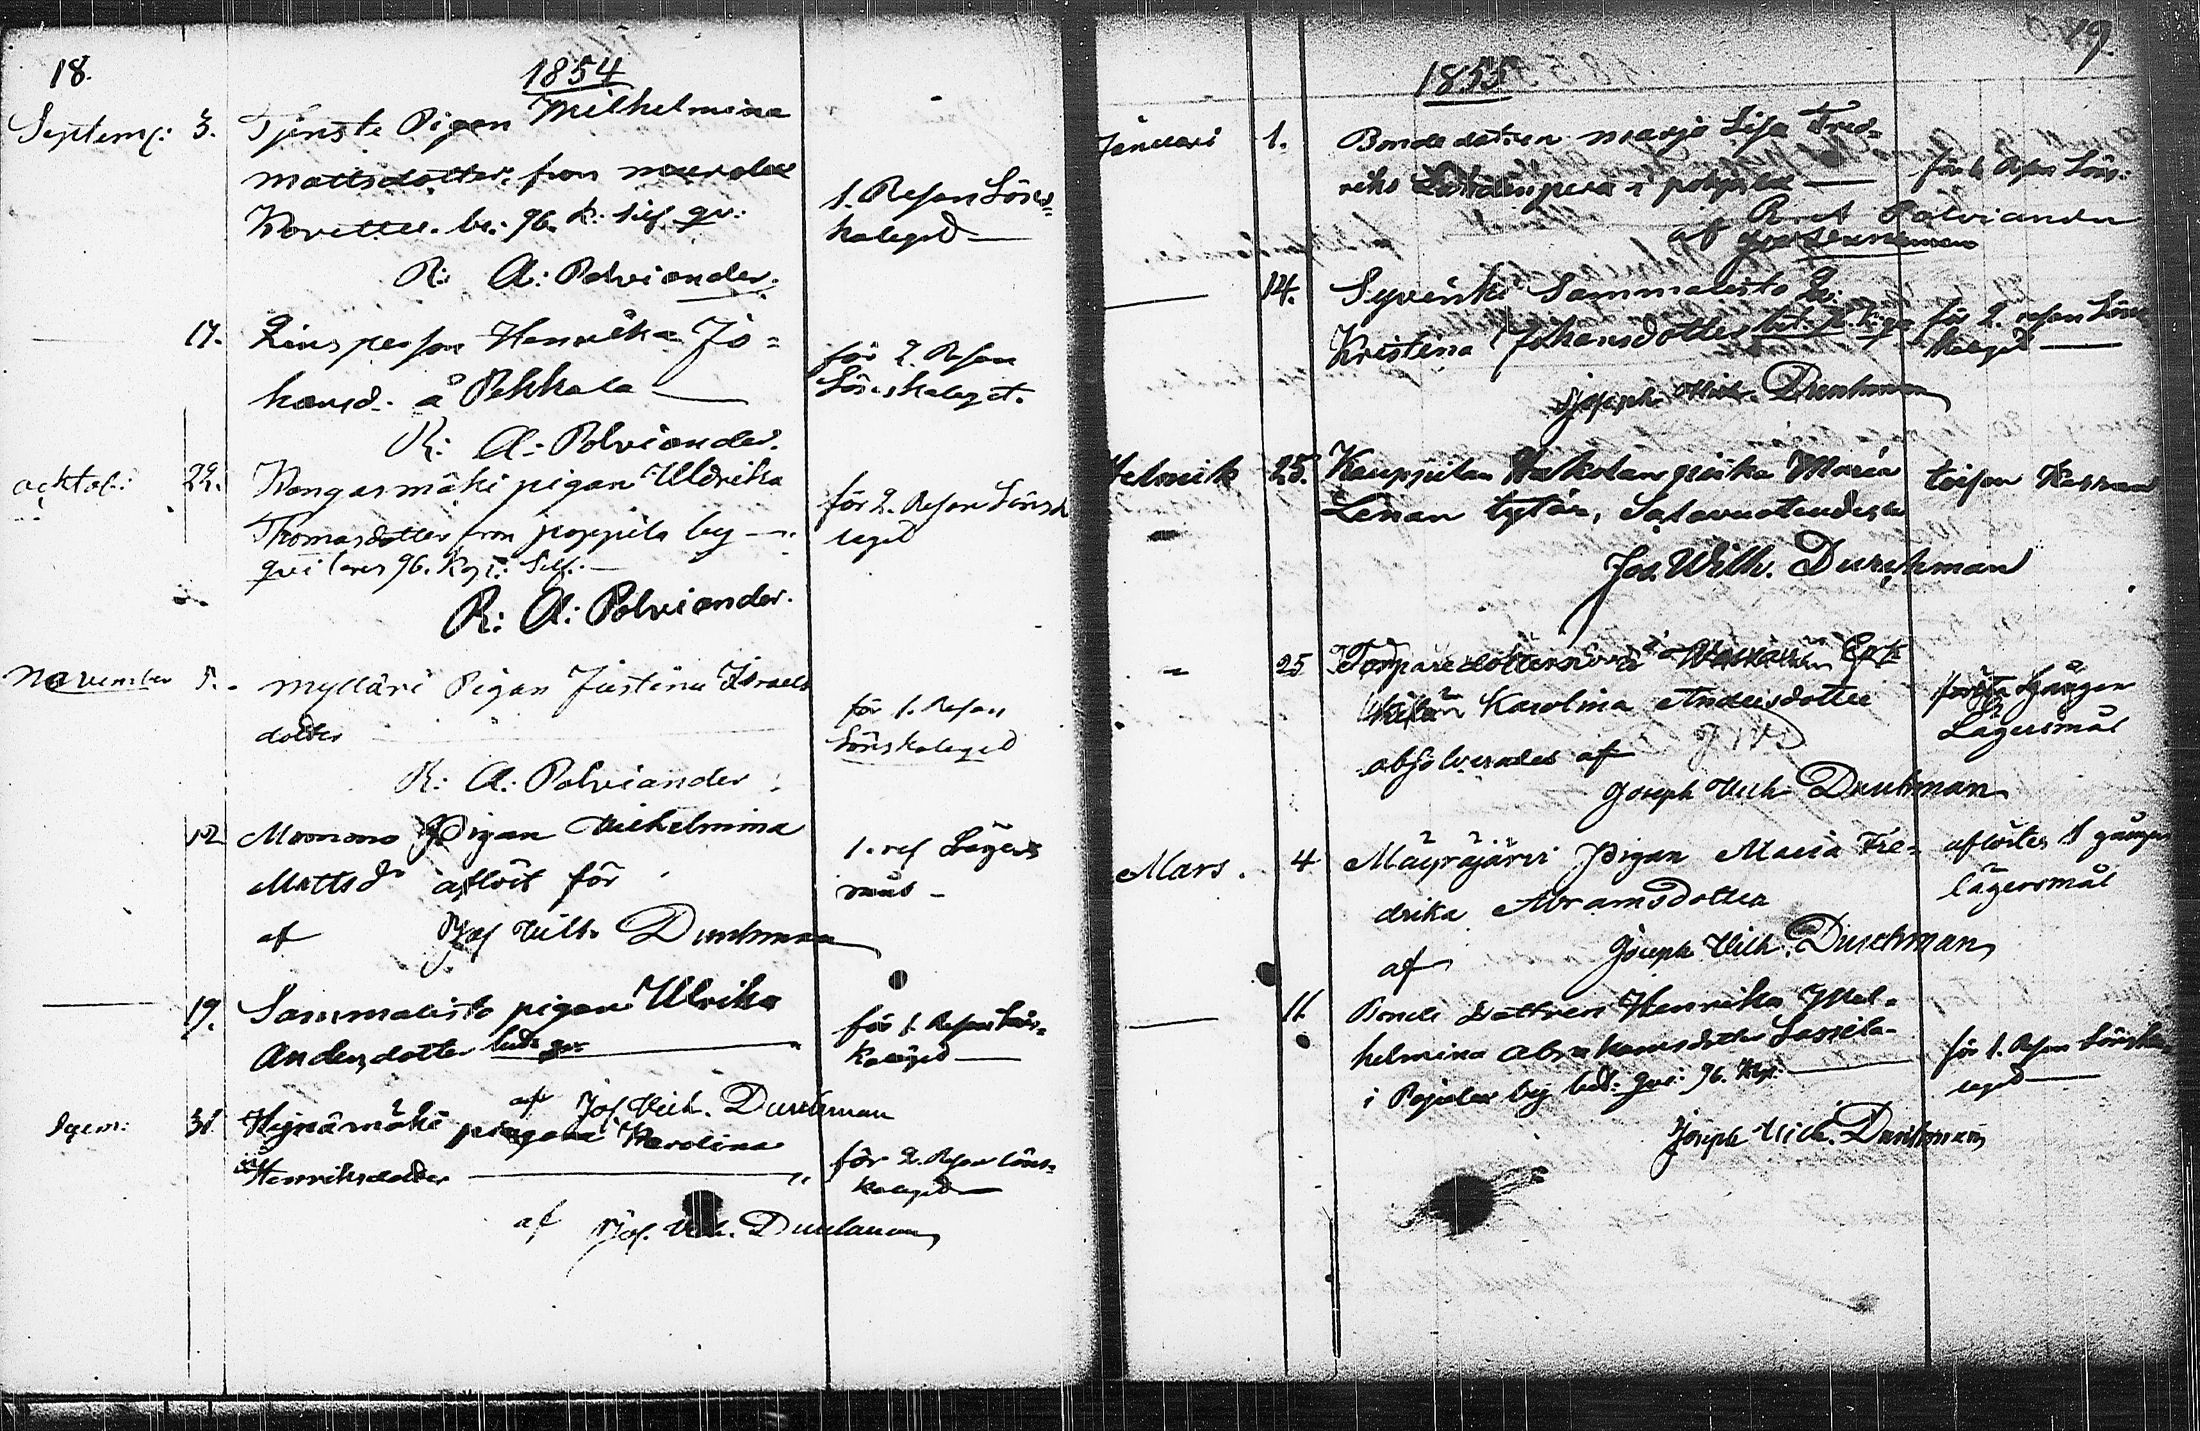 18.
1854
Septemb: 3. Tjenste Pigan Wilhelmina
Mattsdotter, fron
be: 96. k: Silf. qv:
1. Resan Löns-
kaleged
R: A: Polviander.
17. Inhs person Henrika Jo=
hansd. å Pekkala
för 2. Resan
Lönskaleget.
R: A: Polviander.
acktob: 22. Kangasmäki pigan Uldrika
Thomasdotter fron poppila by
96. Kop: Silf:
för 2. Resan Lönsk
leged
R: A: Polviander.
November 5. Mylläri Pigan Justina Israels
dotter
för 1. Resan
Lönskaleged
R: A: Polviander
12 Pigan Wilhelmina
Mattsdr aflöst för
1. res Lägers
mål
af Jos Wilh. Durchman
19. Sammalisto pigan Ulrika
Andersdotter
för 1. Resan Löns-
kaleged
af Jos. Wilh. Durchman
31 Hejnämäki pigan Karolina
Henriksdotter
för 2. Resan Löns-
kaleged
af Jos. Wilh. Durchman
19.
1855
Januari 1. Bonde dottren Marja Lisa Fred=
riks i pohjala
för 1. Resan Löns:
af R: A Polviander
14. Syvänki Sammalisto
Kristina Johansdotter
för 2. resan Löns
kaleged
Joseph Wilh. Durchman
Helmik 25. Kauppilan Maria
Leenan tytär, Salavuoteudesta
toisen Kerran
Jos. Wilh. Durchman
25 Torpare
Karolina Andersdotter
absolverades af
första Gången
Lägersmål
Joseph Wilh Durchman
Mars. 4 Mäyräjärvi Pigan Maria Fre-
drika Abramsdotter
aflöstes 1 gången
lägersmål
af Joseph Wilh. Durchman
11. Bonde dottren Henrika Wil-
helmina Abrahamsdotter Lassila
i Pojalax by bet: qvi: 96. Kop:
för 1. Resan Lönska
leged
Joseph Wilh. Durchman